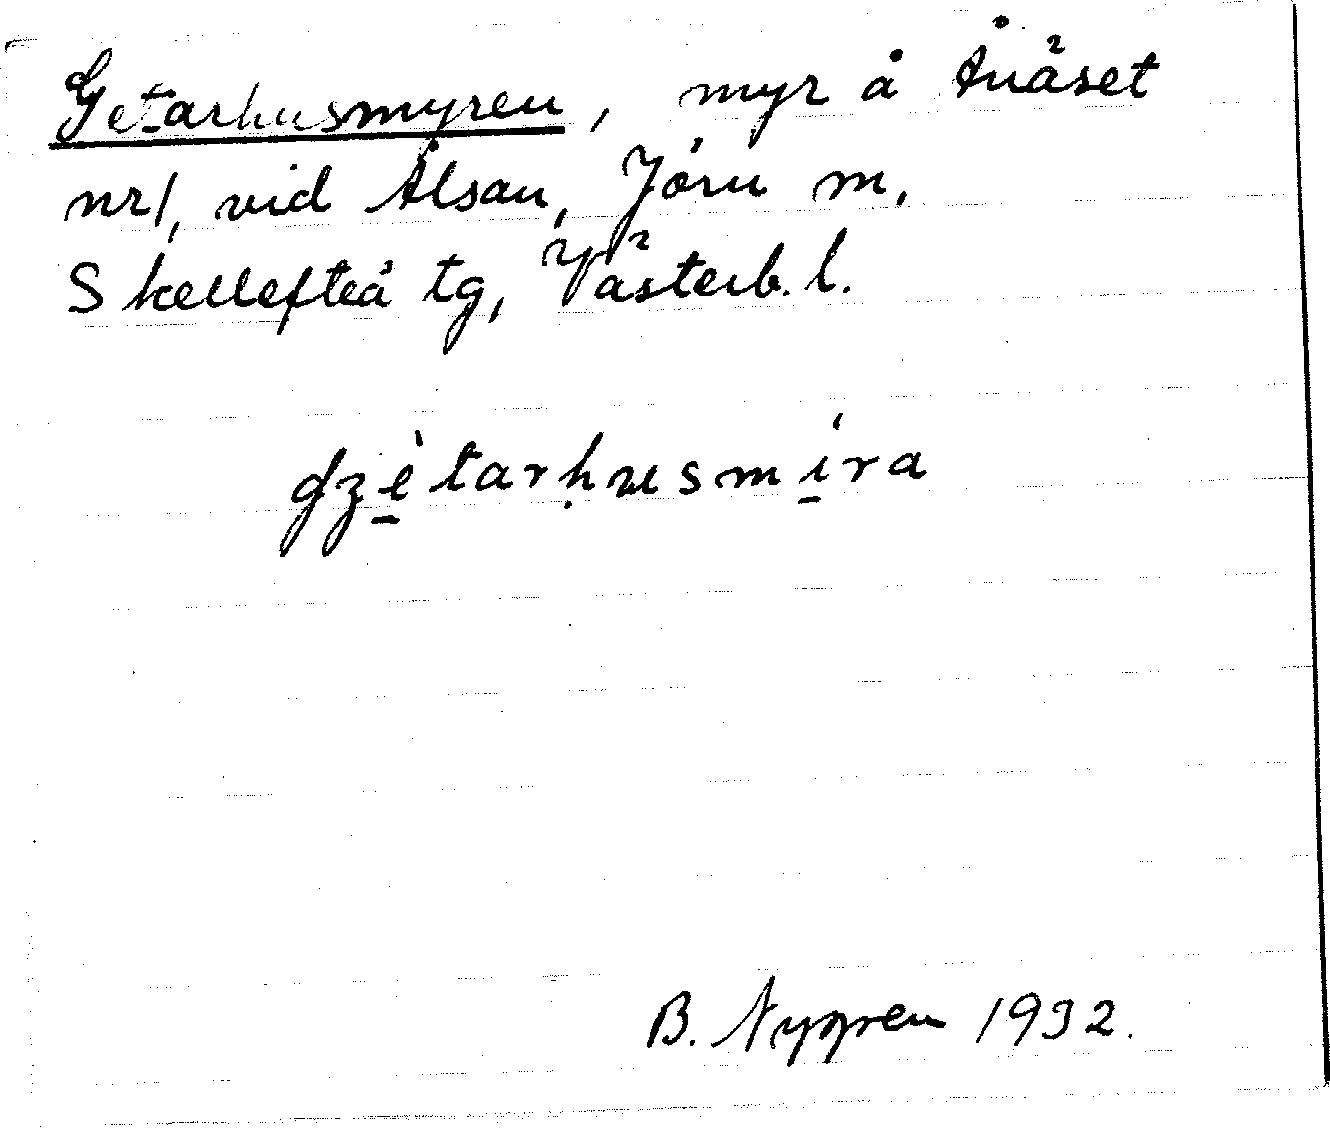 Getarhusmyren, myr å Ånäset
nr 1, vid Ålsån, Jörn m,
Skellefteå tg, Västerb. l.
ɡʒètarḥusmíra
B. Nygren 1932.